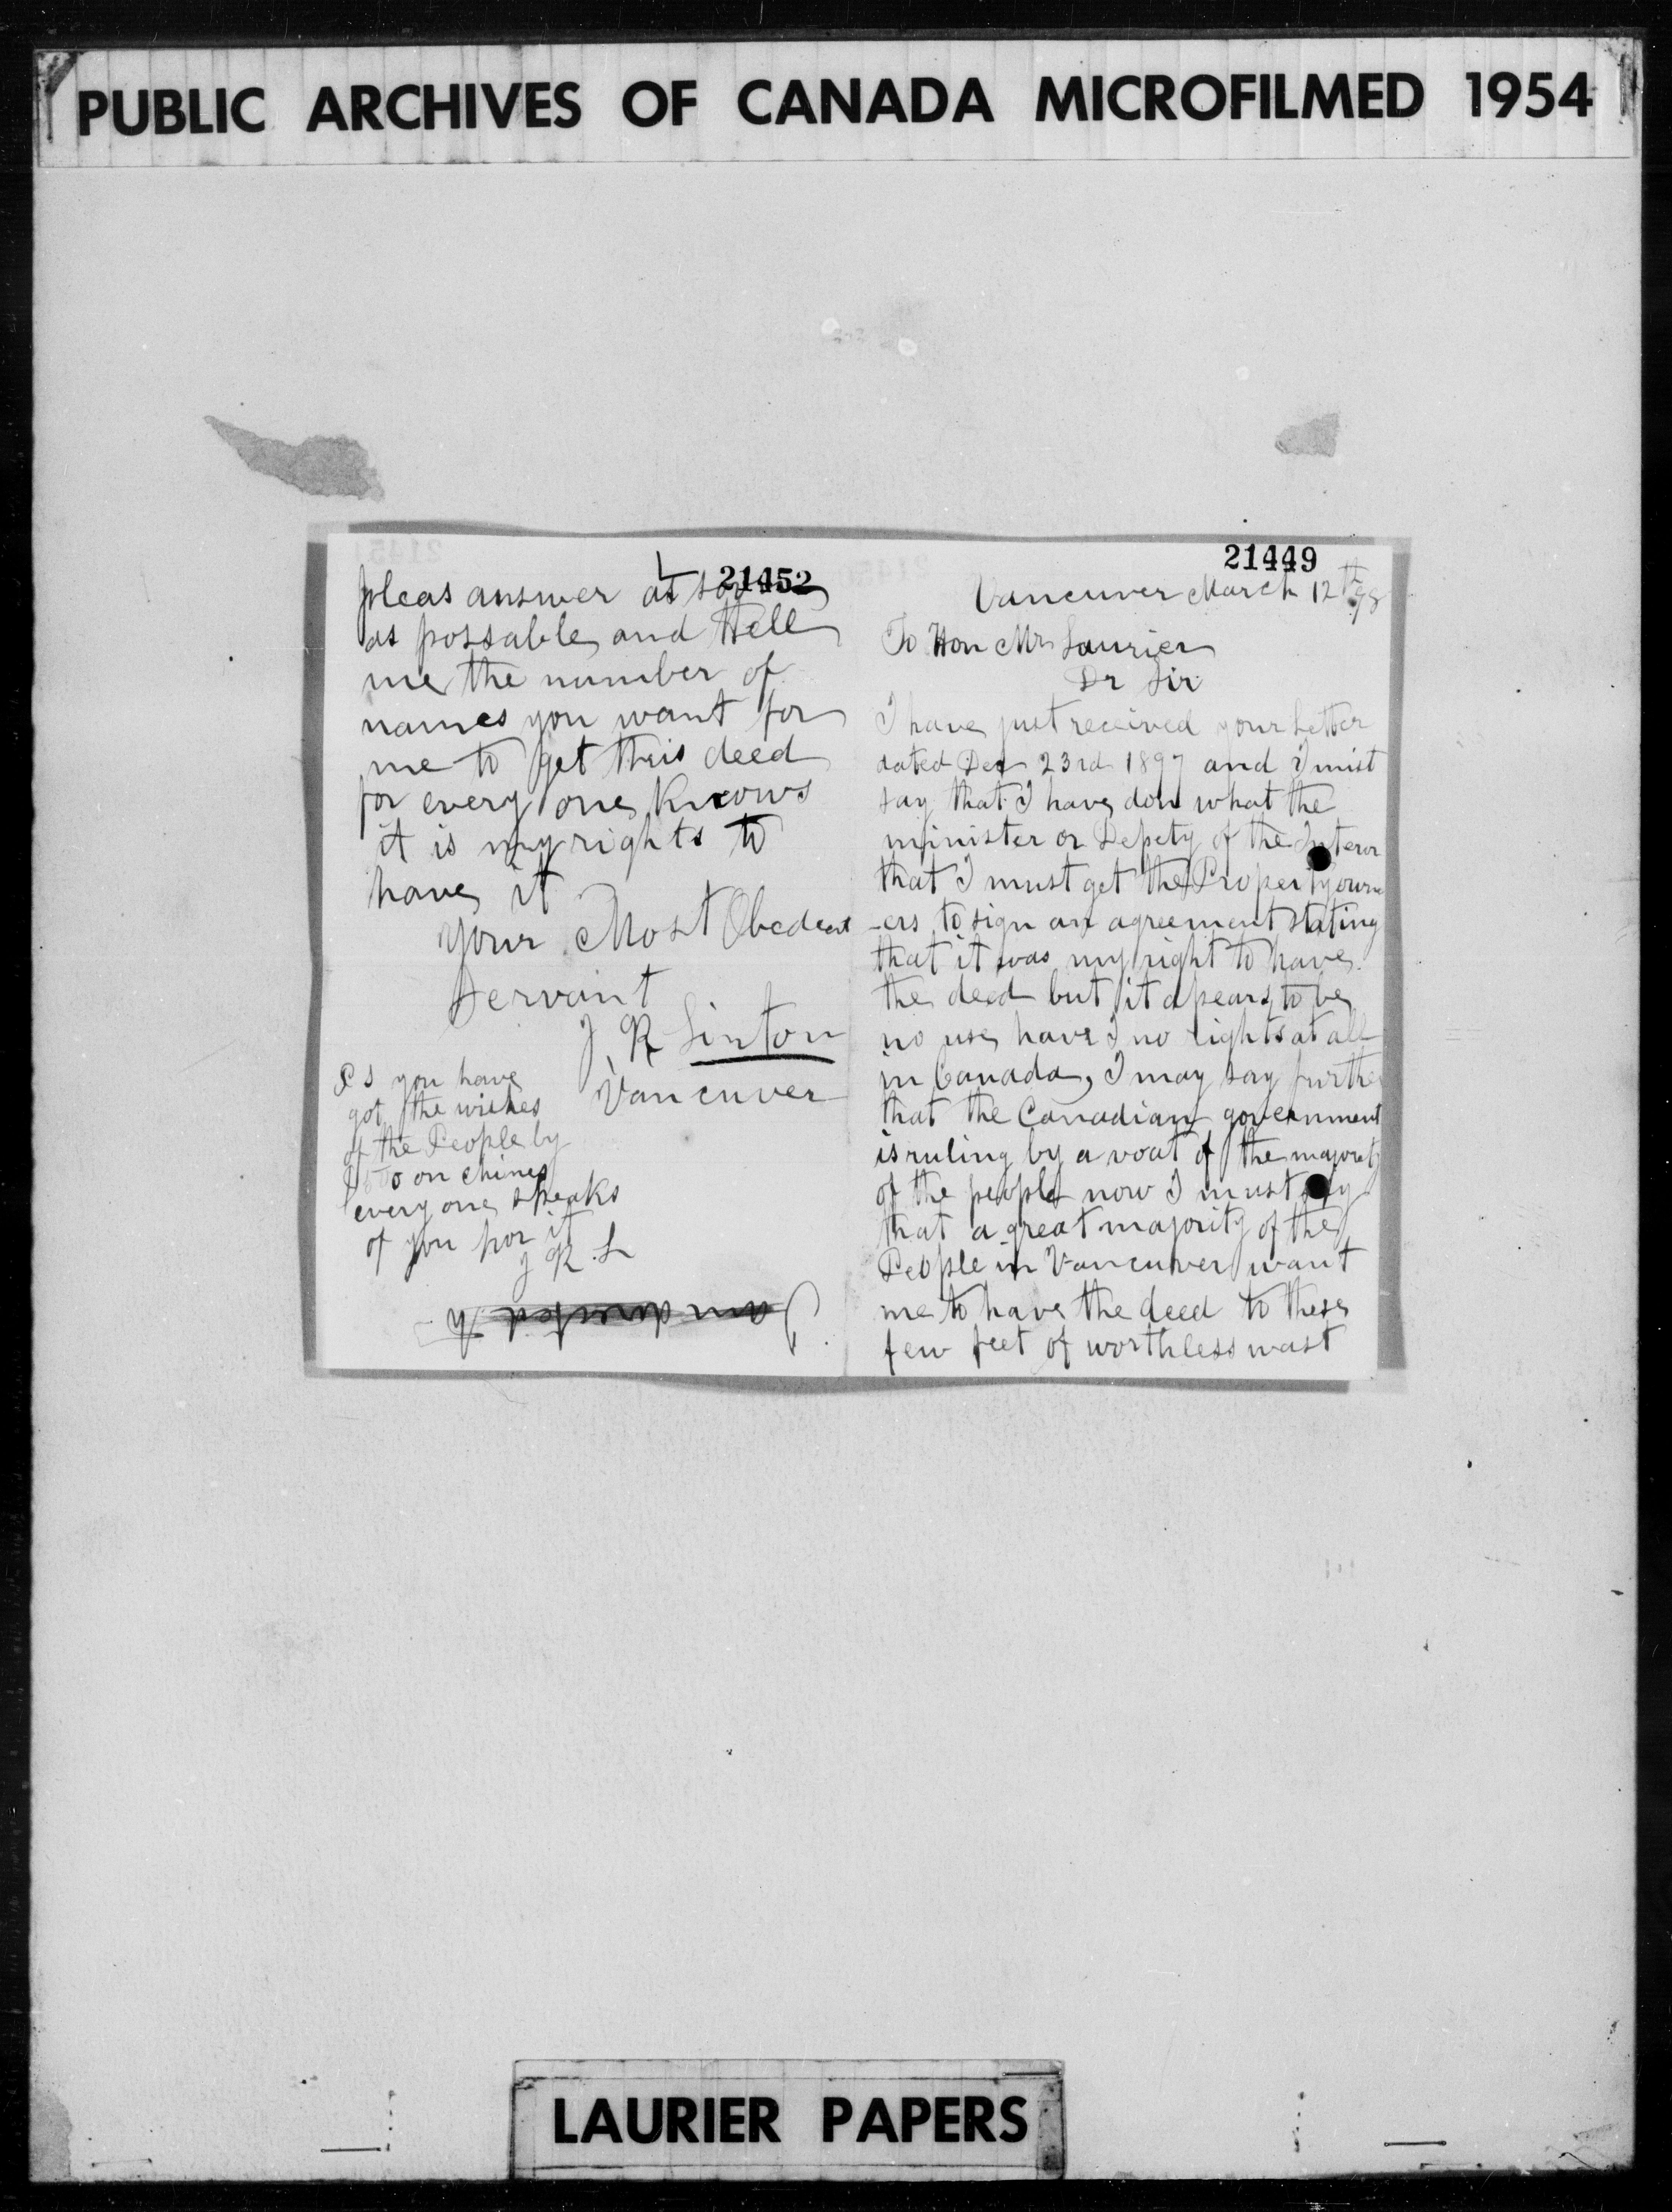 PUBLIC ARCHIVES OF CANADA MICROFILMED 1954
21452
pleas answer as
as possable and tell
me the number of
names you want for
me to get this deed
for every one knows
it is my rights to
have it
your Most Obedeent
Servant
J. R Linton
Vancuver
P S you have
got the wishes
of the People by
on chines
every one speaks
of you for it
J R. L
21449
Vancuver March 12th 98
To Hon Mr Laurier
Dr Sir
I have just received your Letter
dated Dec 23rd 1897 and I mist
say that I have don what the
minister or Depety of the Interor
that I must get the Property own
-ers to sign an agreement stating
that it was my right to have
the deed but it apears to be
no use have I no rights at all
in Canada, I may say further
that the Canadian government
is ruling by a voat of the majority
of the people now I must say
that a great majority of the
People in Vancuver want
me to have the deed to these
few feet of worthless wast
LAURIER PAPERS